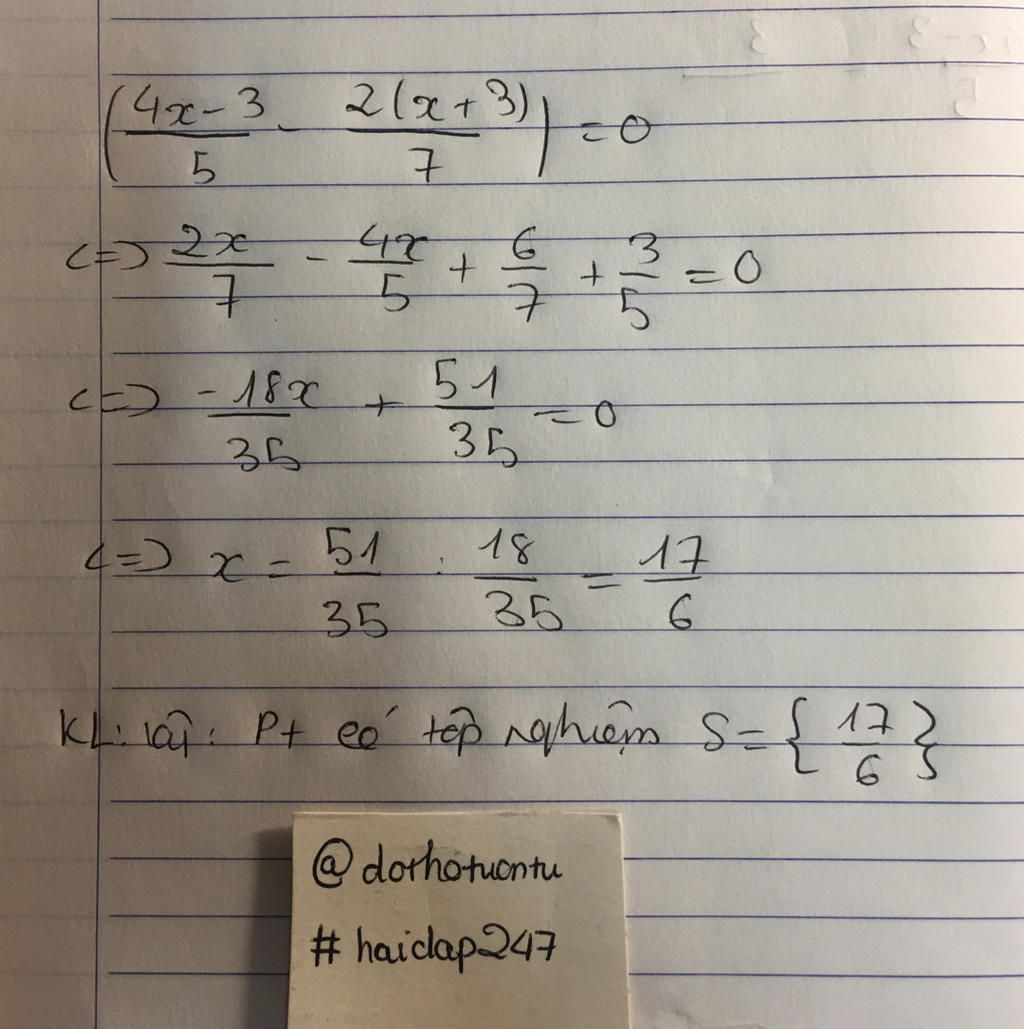 (4x-3/5 - 2(x+3)/7) = 0
<=> 2x/7 - 4x/5 + 6/7 + 3/5 = 0
<=> -18x/35 + 51/35 = 0
<=> x = 51/35 : 18/35 = 17/6
KL: Vậy: Pt có tập nghiệm S = {17/6}
@dothotuontu
#haidap247